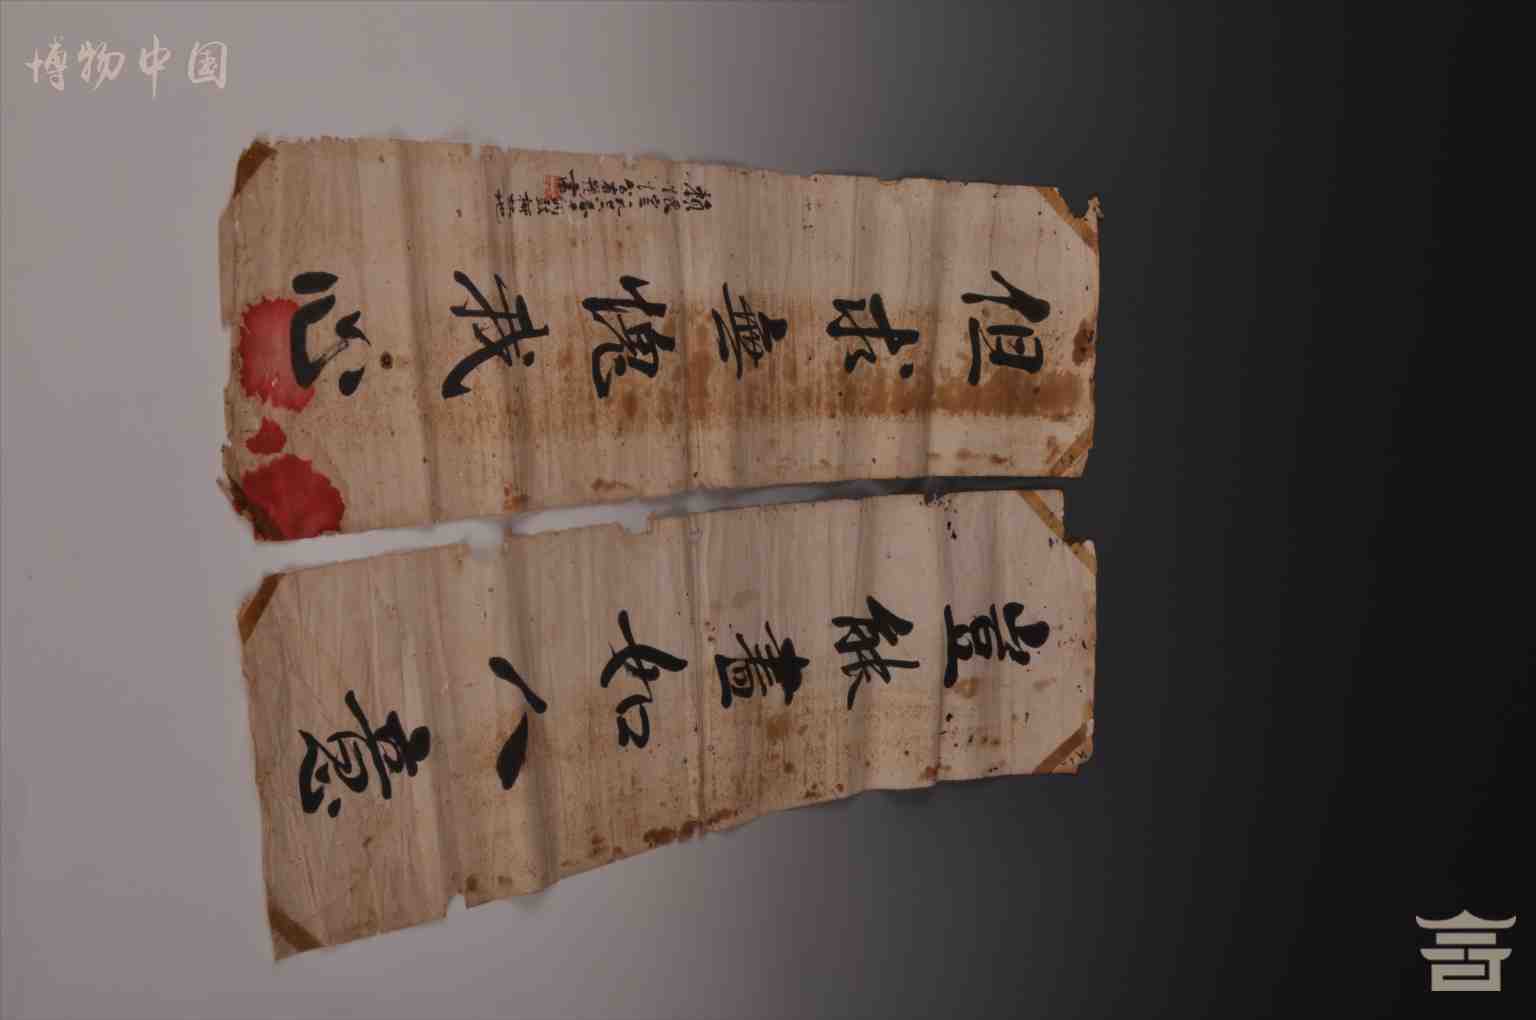 博物中国
豈能盡如人意
但求無愧我心